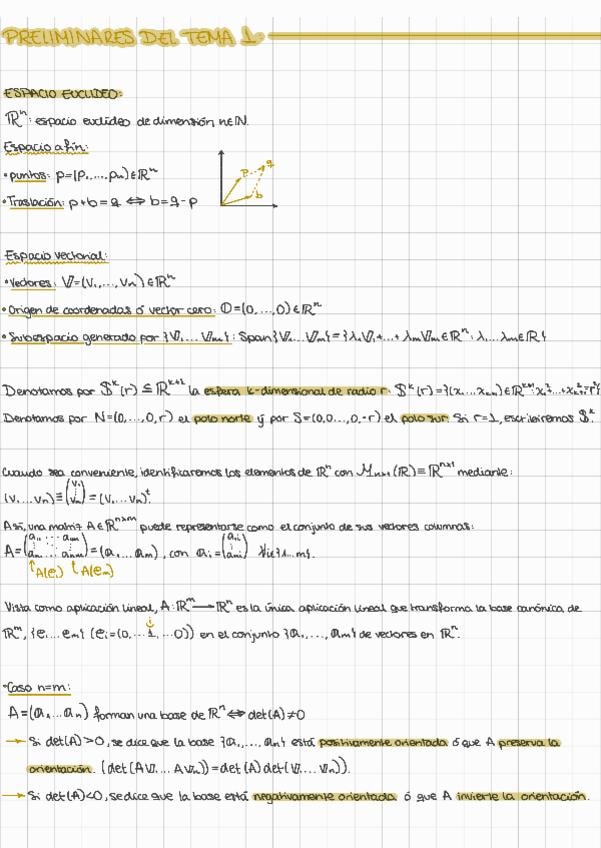 PRELIMINARES DEL TEMA 1.
ESPACIO EUCLÍDEO:
ℝⁿ: espacio euclídeo de dimensión n∈ℕ.
Espacio afín:
• puntos: p=(p₁,...,pₙ)∈ℝⁿ
• Traslación: p+b=q ⇔ b=q-p
p q b
Espacio vectorial:
• Vectores: 𝕍=(v₁,...,vₙ)∈ℝⁿ
• Origen de coordenadas ó vector cero: 𝕆=(0,...,0)∈ℝⁿ
• Subespacio generado por {𝕍₁...𝕍ₘ}: Span{𝕍₁...𝕍ₘ}={λ₁𝕍₁+...+λₘ𝕍ₘ∈ℝⁿ: λ₁...λₘ∈ℝ}
Denotamos por 𝕊ᵏ(r) ⊆ ℝᵏ⁺¹ la esfera k-dimensional de radio r: 𝕊ᵏ(r)={(x₁...xₖ₊₁)∈ℝᵏ⁺¹: x₁²+...+xₖ₊₁²=r²}
Denotamos por N=(0,...,0,r) el polo norte y por S=(0,0...,0,-r) el polo sur. Si r=1, escribiremos 𝕊ᵏ.
Cuando sea conveniente, identificaremos los elementos de ℝⁿ con Mₙₓ₁(ℝ)≡ℝⁿˣ¹ mediante:
(v₁...vₙ)≡(v₁ ⋮ vₙ)=(v₁...vₙ)ᵗ.
Así, una matriz A∈ℝⁿˣᵐ puede representarse como el conjunto de sus vectores columnas:
A=(a₁₁ ... a₁ₘ ⋮ ⋱ ⋮ aₙ₁ ... aₙₘ)=(𝕒₁...𝕒ₘ), con 𝕒ᵢ=(a₁ᵢ ⋮ aₙᵢ) ∀i∈{1...m}.
↑A(e₁) ↑A(eₘ)
Vista como aplicación lineal, A:ℝᵐ⟶ℝⁿ es la única aplicación lineal que transforma la base canónica de
ℝᵐ, {e₁...eₘ} (eᵢ=(0,...1,...0)) en el conjunto {𝕒₁,...,𝕒ₘ} de vectores en ℝⁿ.
• Caso n=m:
A=(𝕒₁...𝕒ₙ) forman una base de ℝⁿ ⇔ det(A)≠0
→ Si det(A)>0, se dice que la base {𝕒₁,...,𝕒ₙ} está positivamente orientada ó que A preserva la
orientación. (det(A𝕍₁...A𝕍ₙ)=det(A)det(𝕍₁...𝕍ₙ)).
→ Si det(A)<0, se dice que la base está negativamente orientada ó que A invierte la orientación.